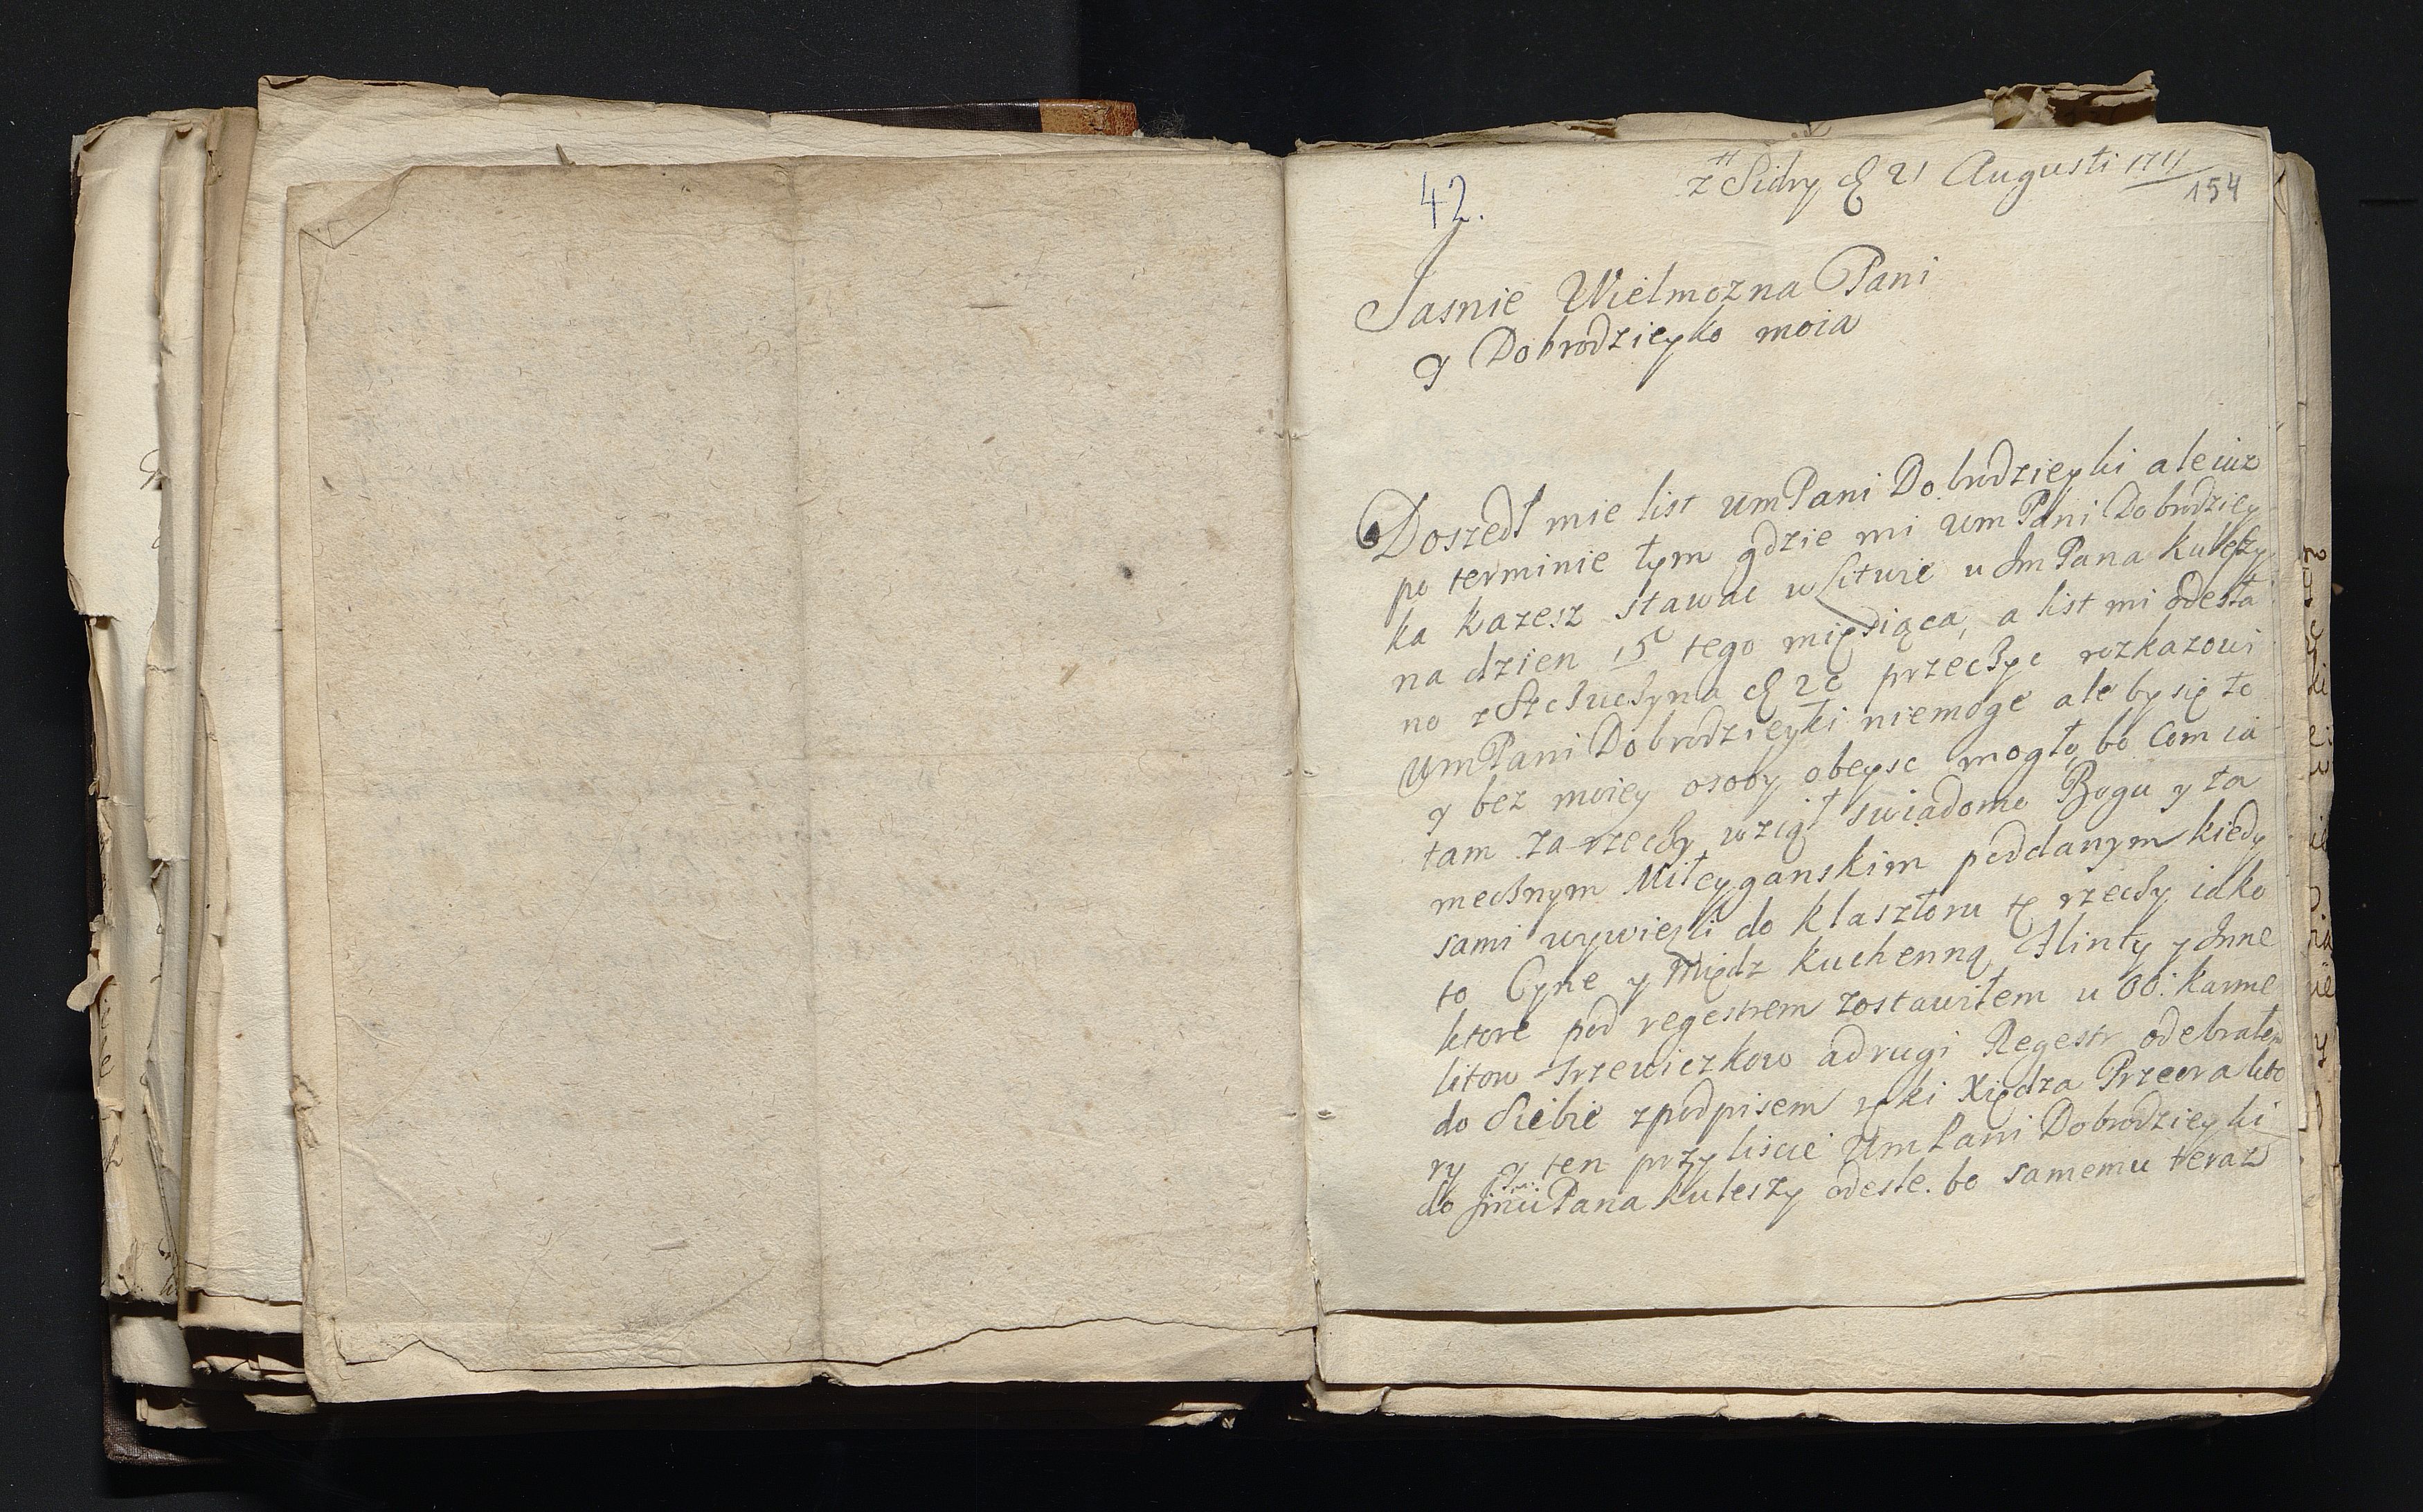 42.
z Sidry d 21 Augusti 1711
154
Jasnie Wielmozna Pani
y Dobrodzieyko moia
Doszedł mie list UmPani Dobrodzieyki ale iuz
po terminie tym gdzie mi UmPani Dobrodziey
ka kazesz stawac w Litwie u JmPana Kuleszy
na dzien 15 tego mięsiąca, a list mi odesła
no z Szchuchyna d 20 przechyc rozkazowi
UmPani Dobrodzieyki niemoge ale by się to
y bez moiey osoby obeysc mogło, bo com ia
tam za rzechy wziął swiadomo Bogu y ta
mechnym Miteyganskim poddanym kiedy
sami wywiezli do klasztoru tę rzechy iako
to Cyne y Międz kuchenną Flinty y Jnne
ktore pod regestrem zostawiłem u OO. Karme
litow Trzewiczkow a drugi Regestr odebrałem
do Siebie z podpisem ręki Xiędza Przeora kto
ry y ten przy liscie UmPani Dobrodzieyki
do Pana Kuleszy odesle. bo samemu teraz